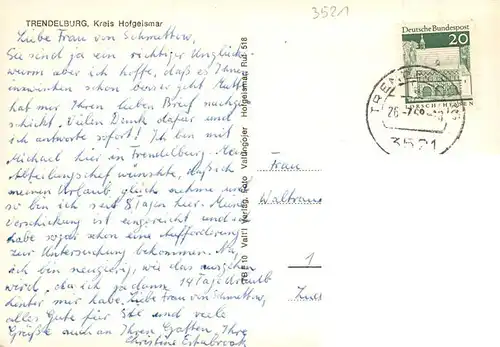 TRENDELBURG, Kreis Hofgeismar
3521
Liebe Frau von Schmettow,
Sie sind ja ein richtiger Unglücks-
wurm aber ich hoffe, daß es Ihnen
inzwischen schon besser geht. Mutti
hat mir Ihren lieben Brief nachge-
schickt. Vielen Dank dafür und
ich antworte sofort! Ich bin mit
Michael hier in Trendelburg. Mein
Abteilungschef wünschte, daß ich
meinen Urlaub gleich nehme und
so bin ich seit 8 Tagen hier. Meine
Verschickung ist eingereicht und ich
habe sogar schon eine Aufforderung
zur Untersuchung bekommen. Na,
ich bin neugierig, wie das ausgehen
wird, da ich ja dann 14 Tage Urlaub
hinter mir habe. Liebe Frau von Schmettow,
alles Gute für Sie und viele
Grüße auch an Ihren Gatten, Ihre
Christine
10 Val'l Verlag, Foto Hofgeismar, Ruf 518
Deutsche Bundespost
20
LORSCH/HESSEN
3521
Frau
Waltraud
1